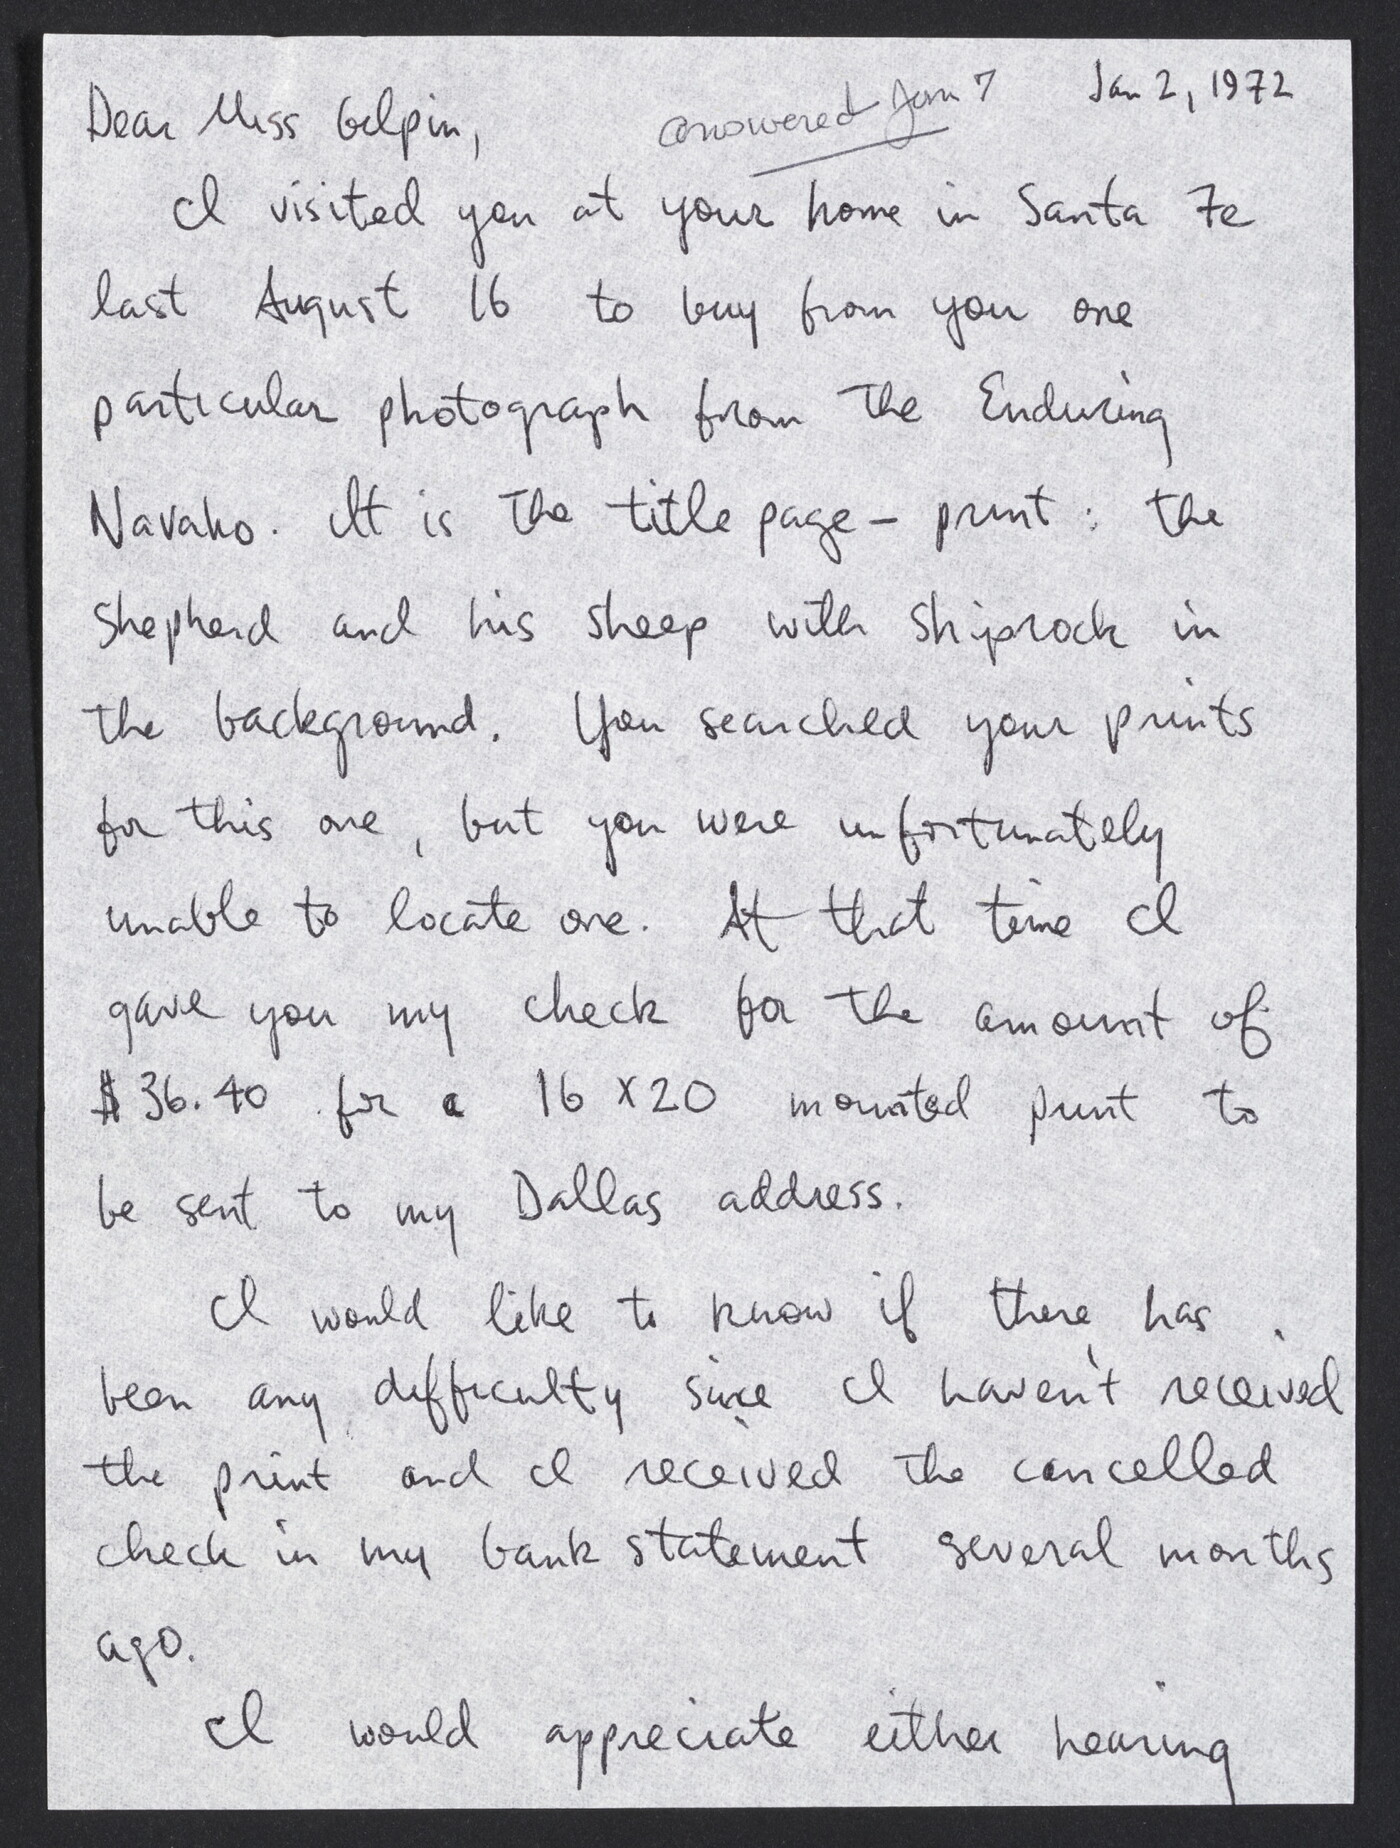 Jan 2, 1972
Dear Miss Gilpin,
answered Jan 7
I visited you at your home in Santa Fe
last August 16 to buy from you one
particular photograph from the Enduring
Navaho. It is the title page - print : the
shepherd and his sheep with shiprock in
the background. You searched your prints
for this one, but you were unfortunately
unable to locate one. At that time I
gave you my check for the amount of
$36.40 for a 16 x 20 mounted print to
be sent to my Dallas address.
I would like to know if there has
been any difficulty since I haven't received
the print and I received the cancelled
check in my bank statement several months
ago.
I would appreciate either hearing